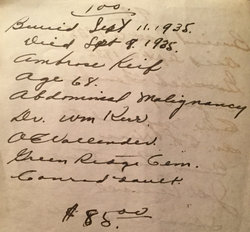 100.
Buried Sept 11. 1935.
Died Spt 9. 1935.
Ambrose Keif
Age 68.
Abdominal Malignancy
Dr. Wm Kerr.
O E Wallender.
Green Ridge Cem.
Conrad vault.
$85.00